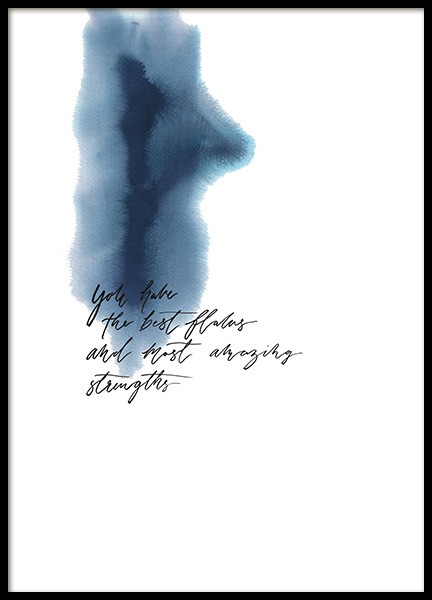 You have
the best flaws
and most amazing
strengths